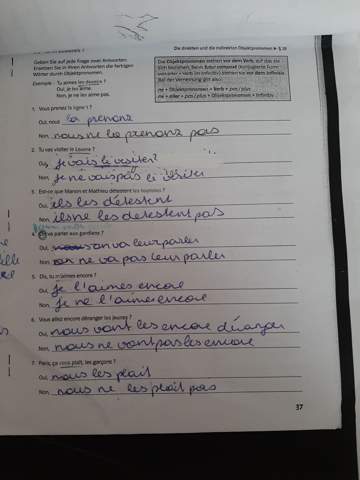 Die direkten und die indirekten Objektpronomen ▸ § 28
Geben Sie auf jede Frage zwei Antworten.
Ersetzen Sie in Ihren Antworten die farbigen
Wörter durch Objektpronomen.
Exemple : Tu aimes les desserts ?
Oui, je les aime.
Non, je ne les aime pas.
Die Objektpronomen stehen vor dem Verb, auf das sie
sich beziehen. Beim futur composé (konjugierte Form
von aller + Verb im Infinitiv) stehen sie vor dem Infinitiv.
Bei der Verneinung gilt also:
ne + Objektpronomen + Verb + pas / plus
ne + aller + pas / plus + Objektpronomen + Infinitiv
1. Vous prenez la ligne 1 ?
Oui, nous la prenonz
Non, nous ne la prenonz pas
2. Tu vas visiter le Louvre ?
Oui, je vais le visiter
Non, je ne vais pas le visiter
3. Est-ce que Manon et Mathieu détestent les touristes ?
Oui, ils les detestent
Non, ils ne les detestent pas
4. On va parler aux gardiens ?
Oui, on va leur parler
Non, on ne va pas leur parler
5. Dis, tu m'aimes encore ?
Oui, je l'aime encore
Non, je ne l'aime encore
6. Vous allez encore déranger les jeunes ?
Oui, nous vont les encore déranger
Non, nous ne vont pas les encore
7. Paris, ça vous plaît, les garçons ?
Oui, nous les plait
Non, nous ne les plait pas
37